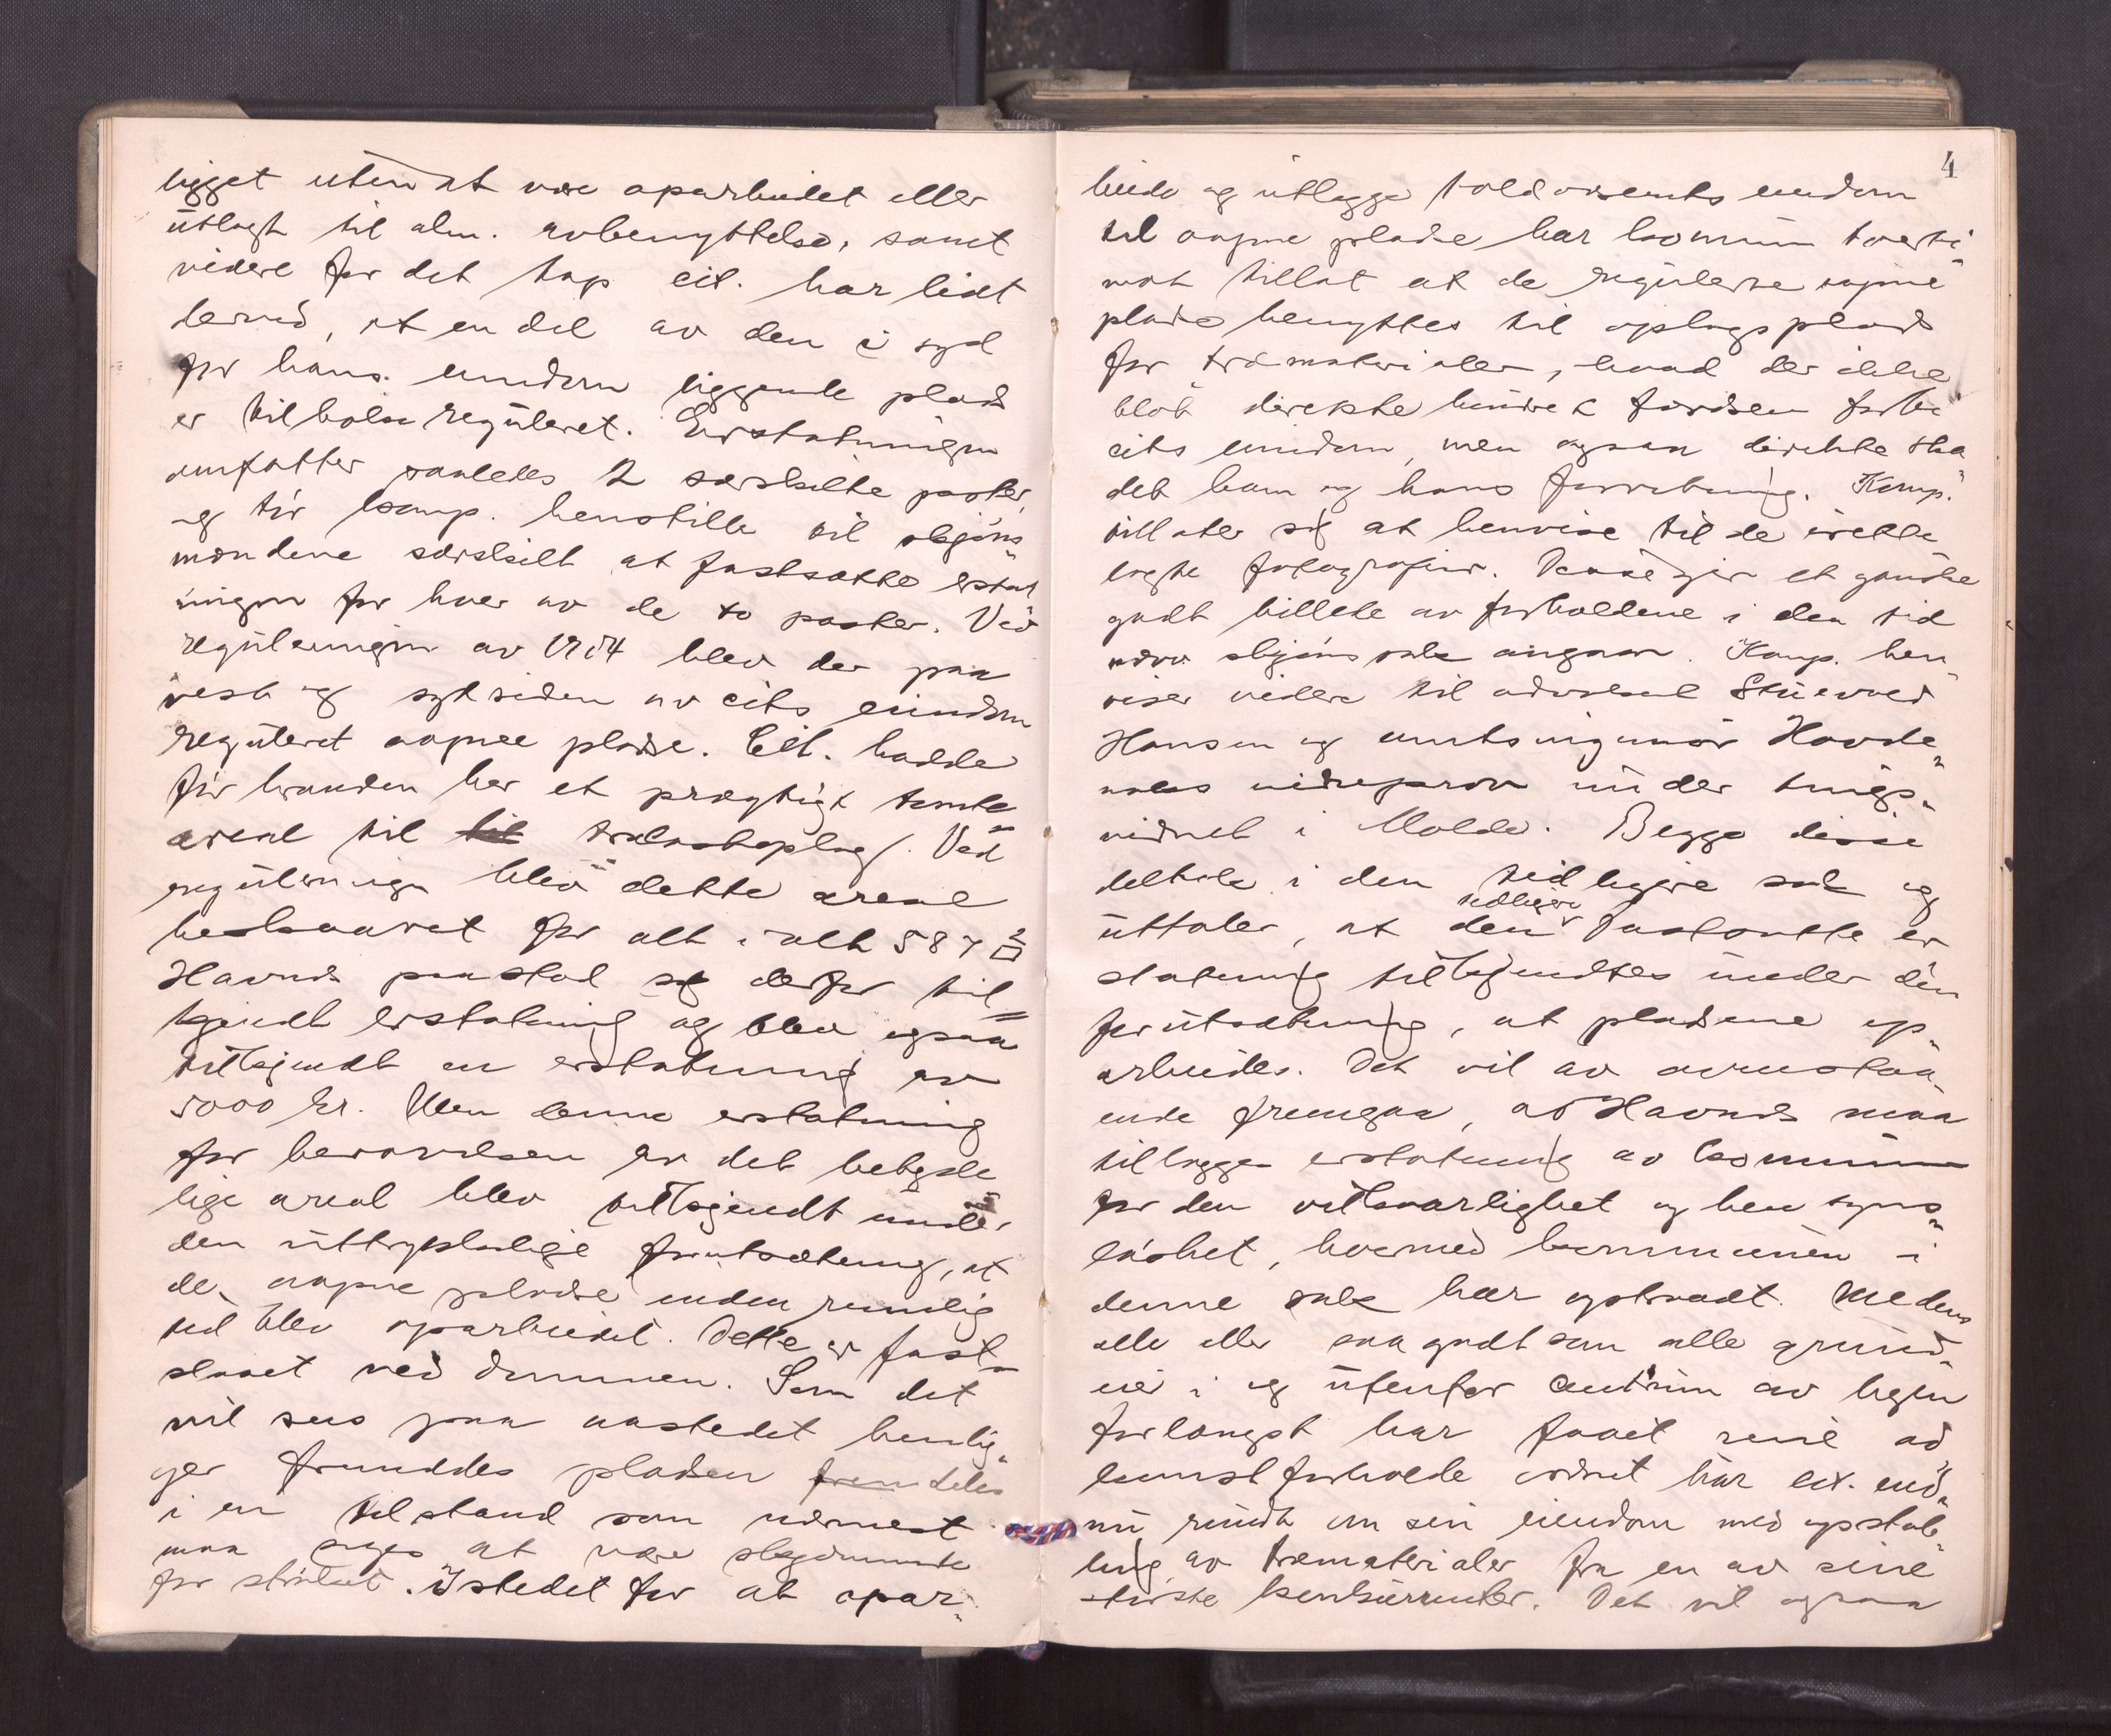 ligget uten at være oparbeidet eller
utlagt til alm. avbenyttelse, samt
videre for det tap cit. har lidt
derved, at en del av den i syd
for hans eiendom liggende plads
er tilbake reguleret. Erstatningen
omfatter saaledes 2 særskilte poster,
og tør komp. henstille til skjøns-
mændene særskilt at fastsætte erstat
ningen for hver av de to poster. Ved
reguleringen av 1904 blev der paa
vest og sydsiden av cits eiendom
reguleret aapne pladse. Cit. hadde
før branden her et prægtigt tomte-
areal til trælastoplag. Ved
reguleringen blev dette areal
beskaaret for alt i alt 587 □
Havnes paastod sig derfor til-
kjendt erstatning og blev ogsaa
tilkjendt en erstatning av
5000 kr. Men denne erstatning
for berøvelsen av det betyde
lige areal blev tilkjendt under
den uttrykkelige forutsætning, at
de aapne pladse inden rimelig
tid blev oparbeidet. Dette er fast-
slaaet ved dommen. Som det
vil sees paa aastedet henlig-
ger fremdeles pladsen
i en tilstand som nærmest
maa siges at være skjæmmende
for strøket. Istedet for at opar-
4
beide og utlægge eiendom
til aapne pladse har kommunen tverti-
mot tillat at de regulerte aapne
pladse benyttes til oplagsplads
for træmaterialer, hvad der ikke
blot direkte hindret færdselen forbi
cits eiendom, men ogsaa direkte ska-
det ham og hans forretning. Komp.
tillater sig at henvise til de irette
lagte fotografier. Disse gir et ganske
godt billede av forholdene i den tid
nærv. skjønssak angaar. Komp. hen-
viser videre til advokat Stuevold
Hansen og amtsingeniør Hovde-
naks vidneprov under tings-
vidnet i Molde. Begge disse
deltok i den tidligere sak og
uttaler, at den tidligere fastsatte er
statning tilkjendtes under den
forutsætning, at pladsene op-
arbeides. Det vil av ovenstaa-
ende fremgaa, at Havnes maa
tillægges erstatning av kommunen
for den uforsvarlighet og hensyns-
løshet, hvormed kommunen i
denne sak har optraadt. Medens
alle eller saa godt som alle grund-
eier i og utenfor centrum av byen
forlængst har faaet sine ad
komstforholde ordnet har cit. end-
nu rundt om sin eiendom med opstab-
ling av træmaterialer fra en av sine
største konkurrenter. Det vil ogsaa